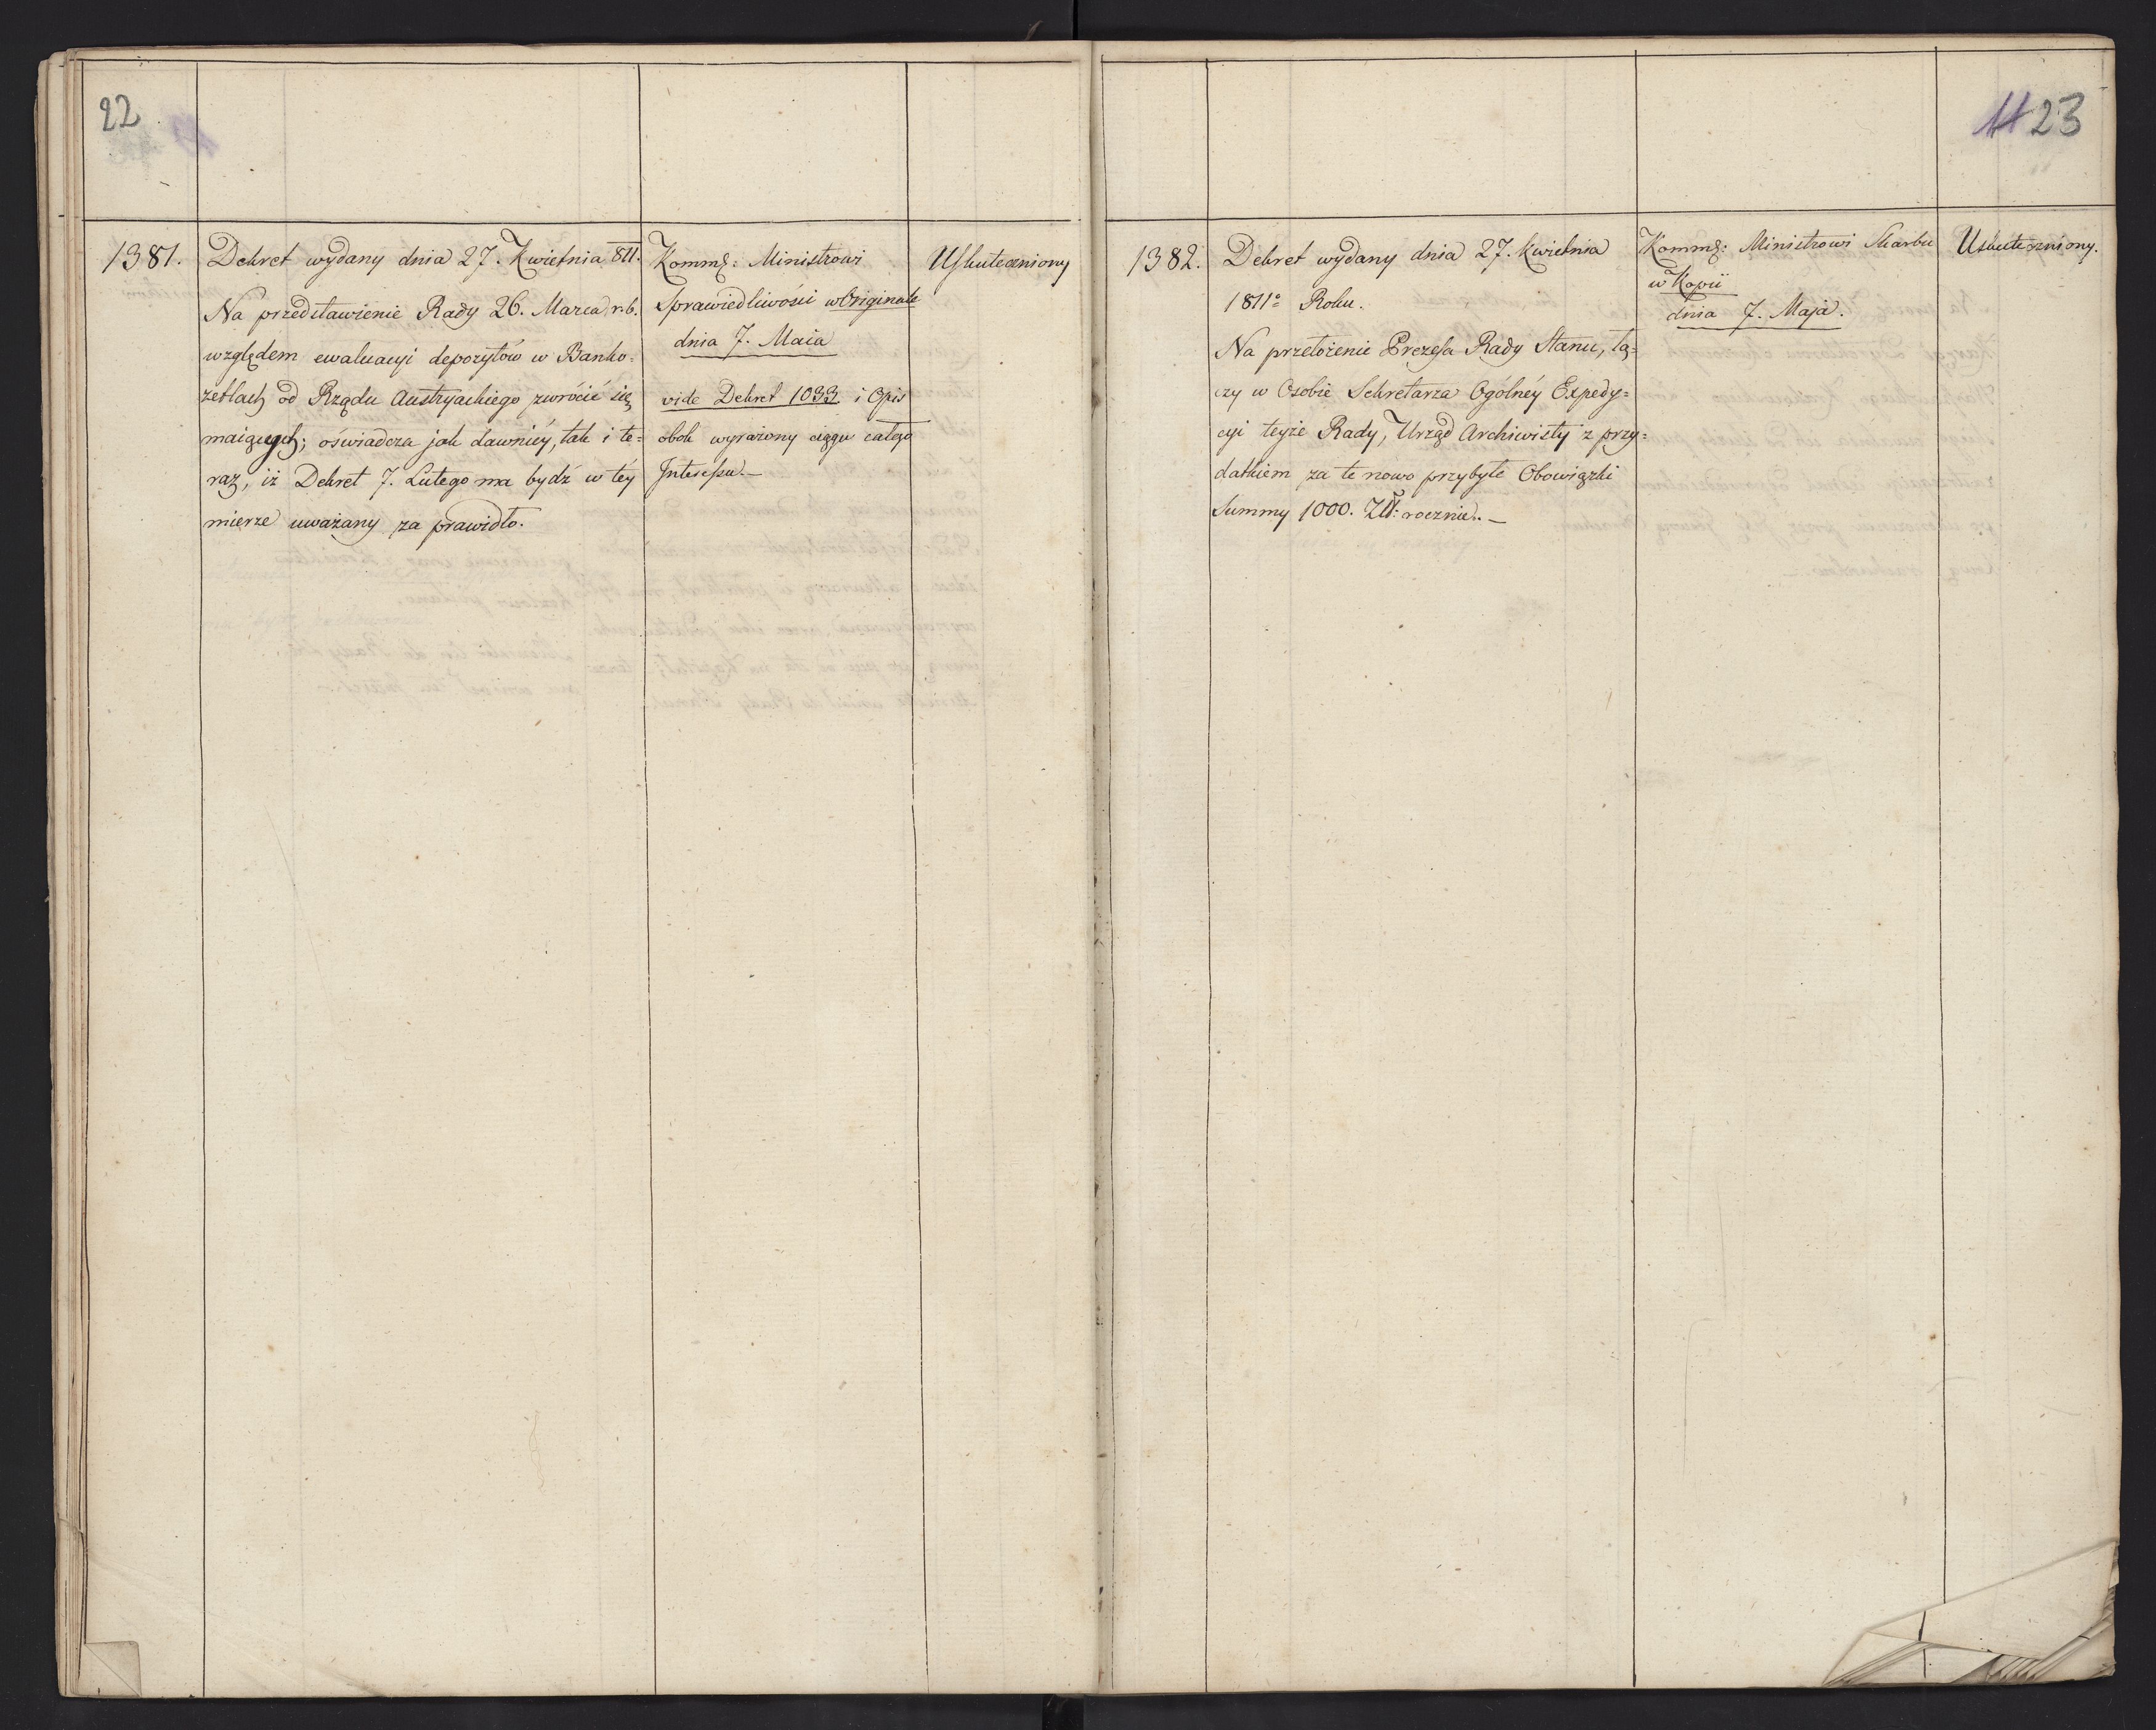 22
1381.
Dekret wydany dnia 27. Kwietnia 811.
Na przedstawienie Rady 26. Marca r. b.
względem ewaluacyi depozytów w Banko=
zetlach od Rządu Austryackiego zwrócić się
maiących; oświadcza jak dawniéy, tak i te=
raz, iż Dekret 7. Lutego ma bydź w téy
mierze uważany za prawidło.
Kommg: Ministrowi
Sprawiedliwości w Originale
dnia 7. Maia
vide Dekret 1033. i Opis
obok wyrażony ciągu całego
Interessu.—
Uskuteczniony
11 23
1382.
Dekret wydany dnia 27. Kwietnia
1811o Roku.
Na przełożenie Prezesa Rady Stanu, łą=
czy w Osobie Sekretarza Ogólnéy Expedy=
cyi teyże Rady, Urząd Archiwisty z przy=
datkiem za te nowo przybyłe Obowiązki
Summy 1000. Złt: rocznie.—
Kommg: Ministrowi Skarbu
w Kopii
dnia 7. Maja.
Uskuteczniony.